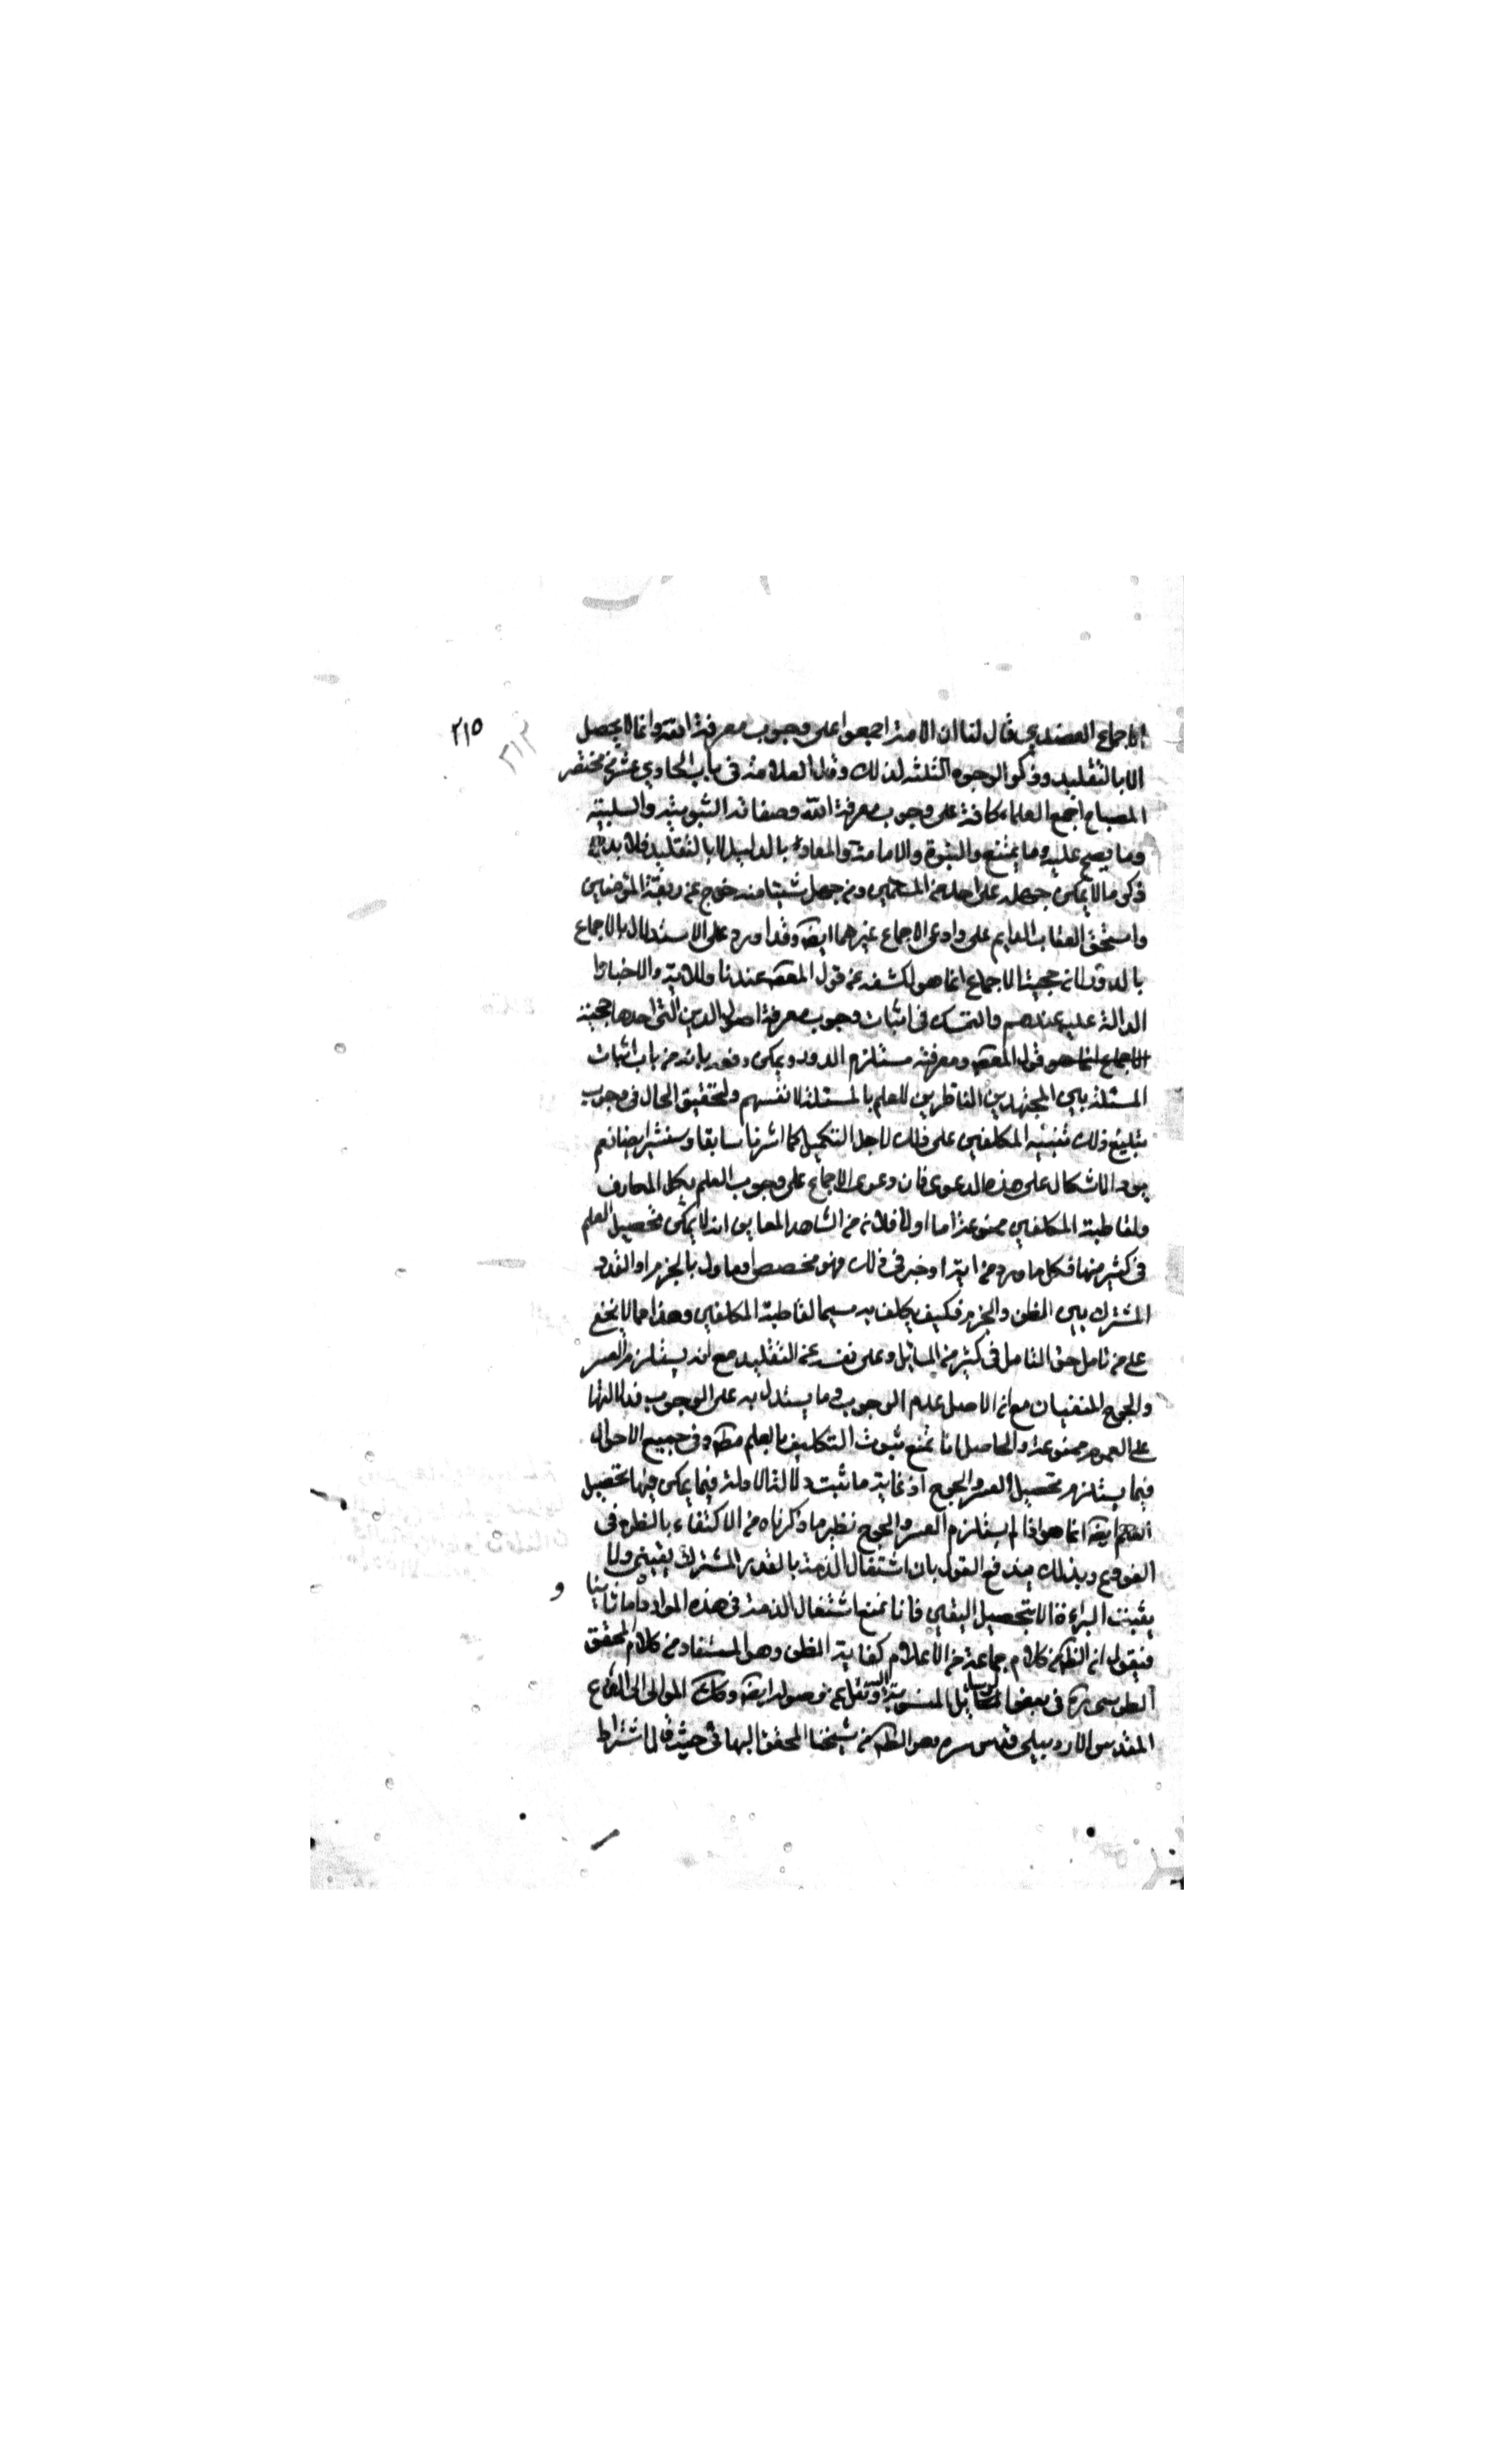 ٢١٥
الاجماع العضدي قال لنا ان الامة اجمعوا على وجوب معرفة الله وانها لا يحصل
الا بالتقليد وذكر الوجوه الثلثة لذلك وقال العلامة في باب الحادي عشر من مختصر
المصباح اجمع العلماء كافة على وجوب معرفة الله وصفاته الثبوتية والسلبية
وما يصح عليه وما يمتنع والنبوة والامامة والمعاد بالدليل لا بالتقليد فلا بد من
ذكر ما لا يمكن جهله على احد من المسلمين ومن جهل شيئا منه خرج عن ربقة المؤمنين
واستحق العقاب الدايم على وادعى الاجماع غيرهما ايضا وقد اورد على الاستدلال بالاجماع
بالدور لان حجية الاجماع انما هو لكشفه عن قول المعصوم عندنا وللاية والاخبار
الدالة عليه عندهم والتمسك في اثبات وجوب معرفة اصول الدين التي احدها حجية
الاجماع انما هو قول المعصوم ومعرفته مستلزم الدور ويمكن دفعه بانه من باب اثبات
المسئلة بين المجتهدين الناظرين للعلم بالمسئلة لانفسهم ولتحقيق الحال في وجوب
تبليغ ذلك تنبيه المكلفين على ذلك لاجل التكميل كما اشرنا سابقا وسنشير ايضا نعم
يرد الاشكال على هذه الدعوى فان دعوى الاجماع على وجوب العلم بكل المعارف
ولقاطبة المكلفين ممنوعة اما اولا فلانه من الشاهد المعاين انه لا يمكن تحصيل العلم
في كثير منها فكل ما ورد من اية او خبر في ذلك فهو مخصص او ماول بالجزم او القدر
المشترك بين الظن والجزم فكيف يكلف به سيما لقاطبة المكلفين وهذا مما لا يخفى
على من تامل حق التامل في كثير من المسايل وعلى نفسه عن التقليد مع انه يستلزم العسر
والحرج المنفيان مع ان الاصل عدم الوجوب وما يستدل به على الوجوب فدلالتها
على العموم ممنوعة والحاصل انا نمنع ثبوت التكليف بالعلم مطلقا وفي جميع الاحوال
فيما يستلزم تحصيل العسر والحرج اذ غاية ما ثبت دلالة الادلة فيما يمكن فيها تحصيل
العلم ايضا انما هو اذا لم يستلزم العسر والحرج نظير ما ذكرناه من الاكتفاء بالظن في
الفروع وبذلك يندفع القول بان اشتغال الذمة بالقدر المشترك يقيني ولا
يقينت البراءة الا بتحصيل اليقين فانا نمنع اشتغال الذمة في هذه المواد واما ثانيا
فنقول ان الظاهر من كلام جماعة من الاعلام كفاية الظن وهو المستفاد من كلام المحقق
الطوسي ره في بعض الرسايل المنسوبة اليه ونقل عن فصوله ايضا وكذلك المولى الى الورع
المقدس الاردبيلي قدس سره وهو الظاهر من شيخنا المحقق البهائي حيث قال اشتراط